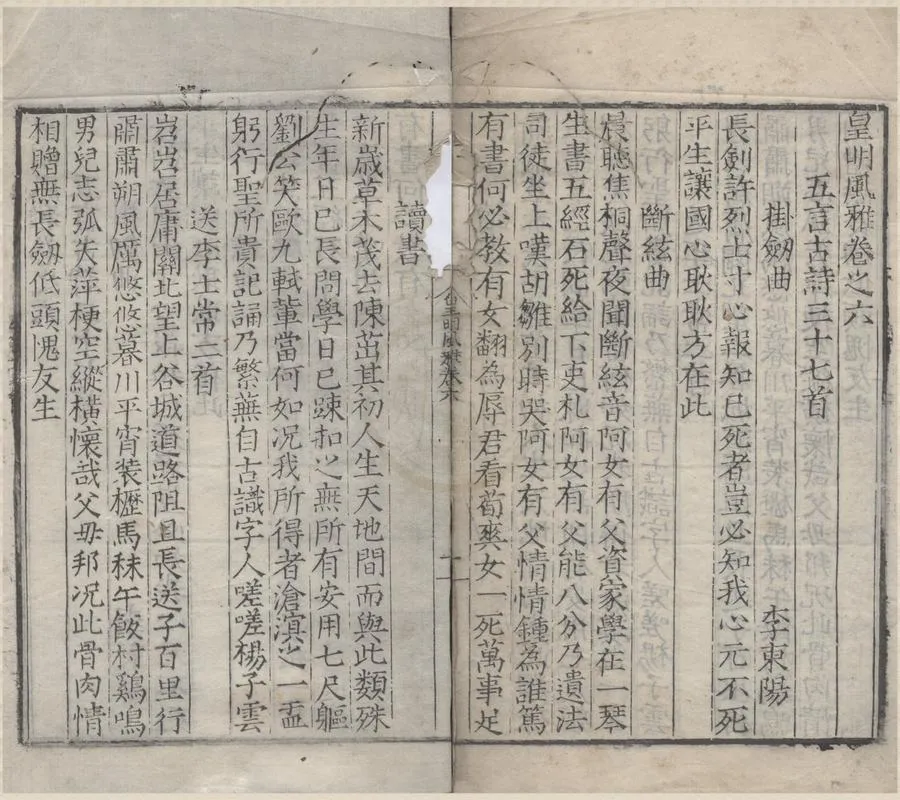 皇明風雅卷之六
五言古詩三十七首
掛劒曲 李東陽
長劍許烈士寸心報知已死者豈必知我心元不死
平生讓國心耿耿方在此
斷絃曲
晨聽焦桐聲夜聞斷絃音阿女有父資家學在一琴
生書五經石死給下吏札阿女有父能八分乃遺法
司徒坐上嘆胡雛別時哭阿女有父情情鍾為誰篤
有書何必教有女翻為辱君看荀爽女一死萬事足
皇明風雅卷六
讀書
新歲草木茂去陳茁其初人生天地間而與此類殊
生年日已長問學日已踈扣之無所有安用七尺軀
劉公笑歐九軾董當何如况我所得者滄溟之一盃
躬行聖所貴記誦乃繁蕪自古識字人嗟嗟楊子雲
送李士常二首
岧岧居庸關北望上谷城道路阻且長送子百里行
肅肅朔風厲悠悠暮川平宵装櫪馬秣午飯村鷄鳴
男兒志弧矢萍梗空縱橫懷哉父毋邦况此骨肉情
相贈無長劒低頭愧友生